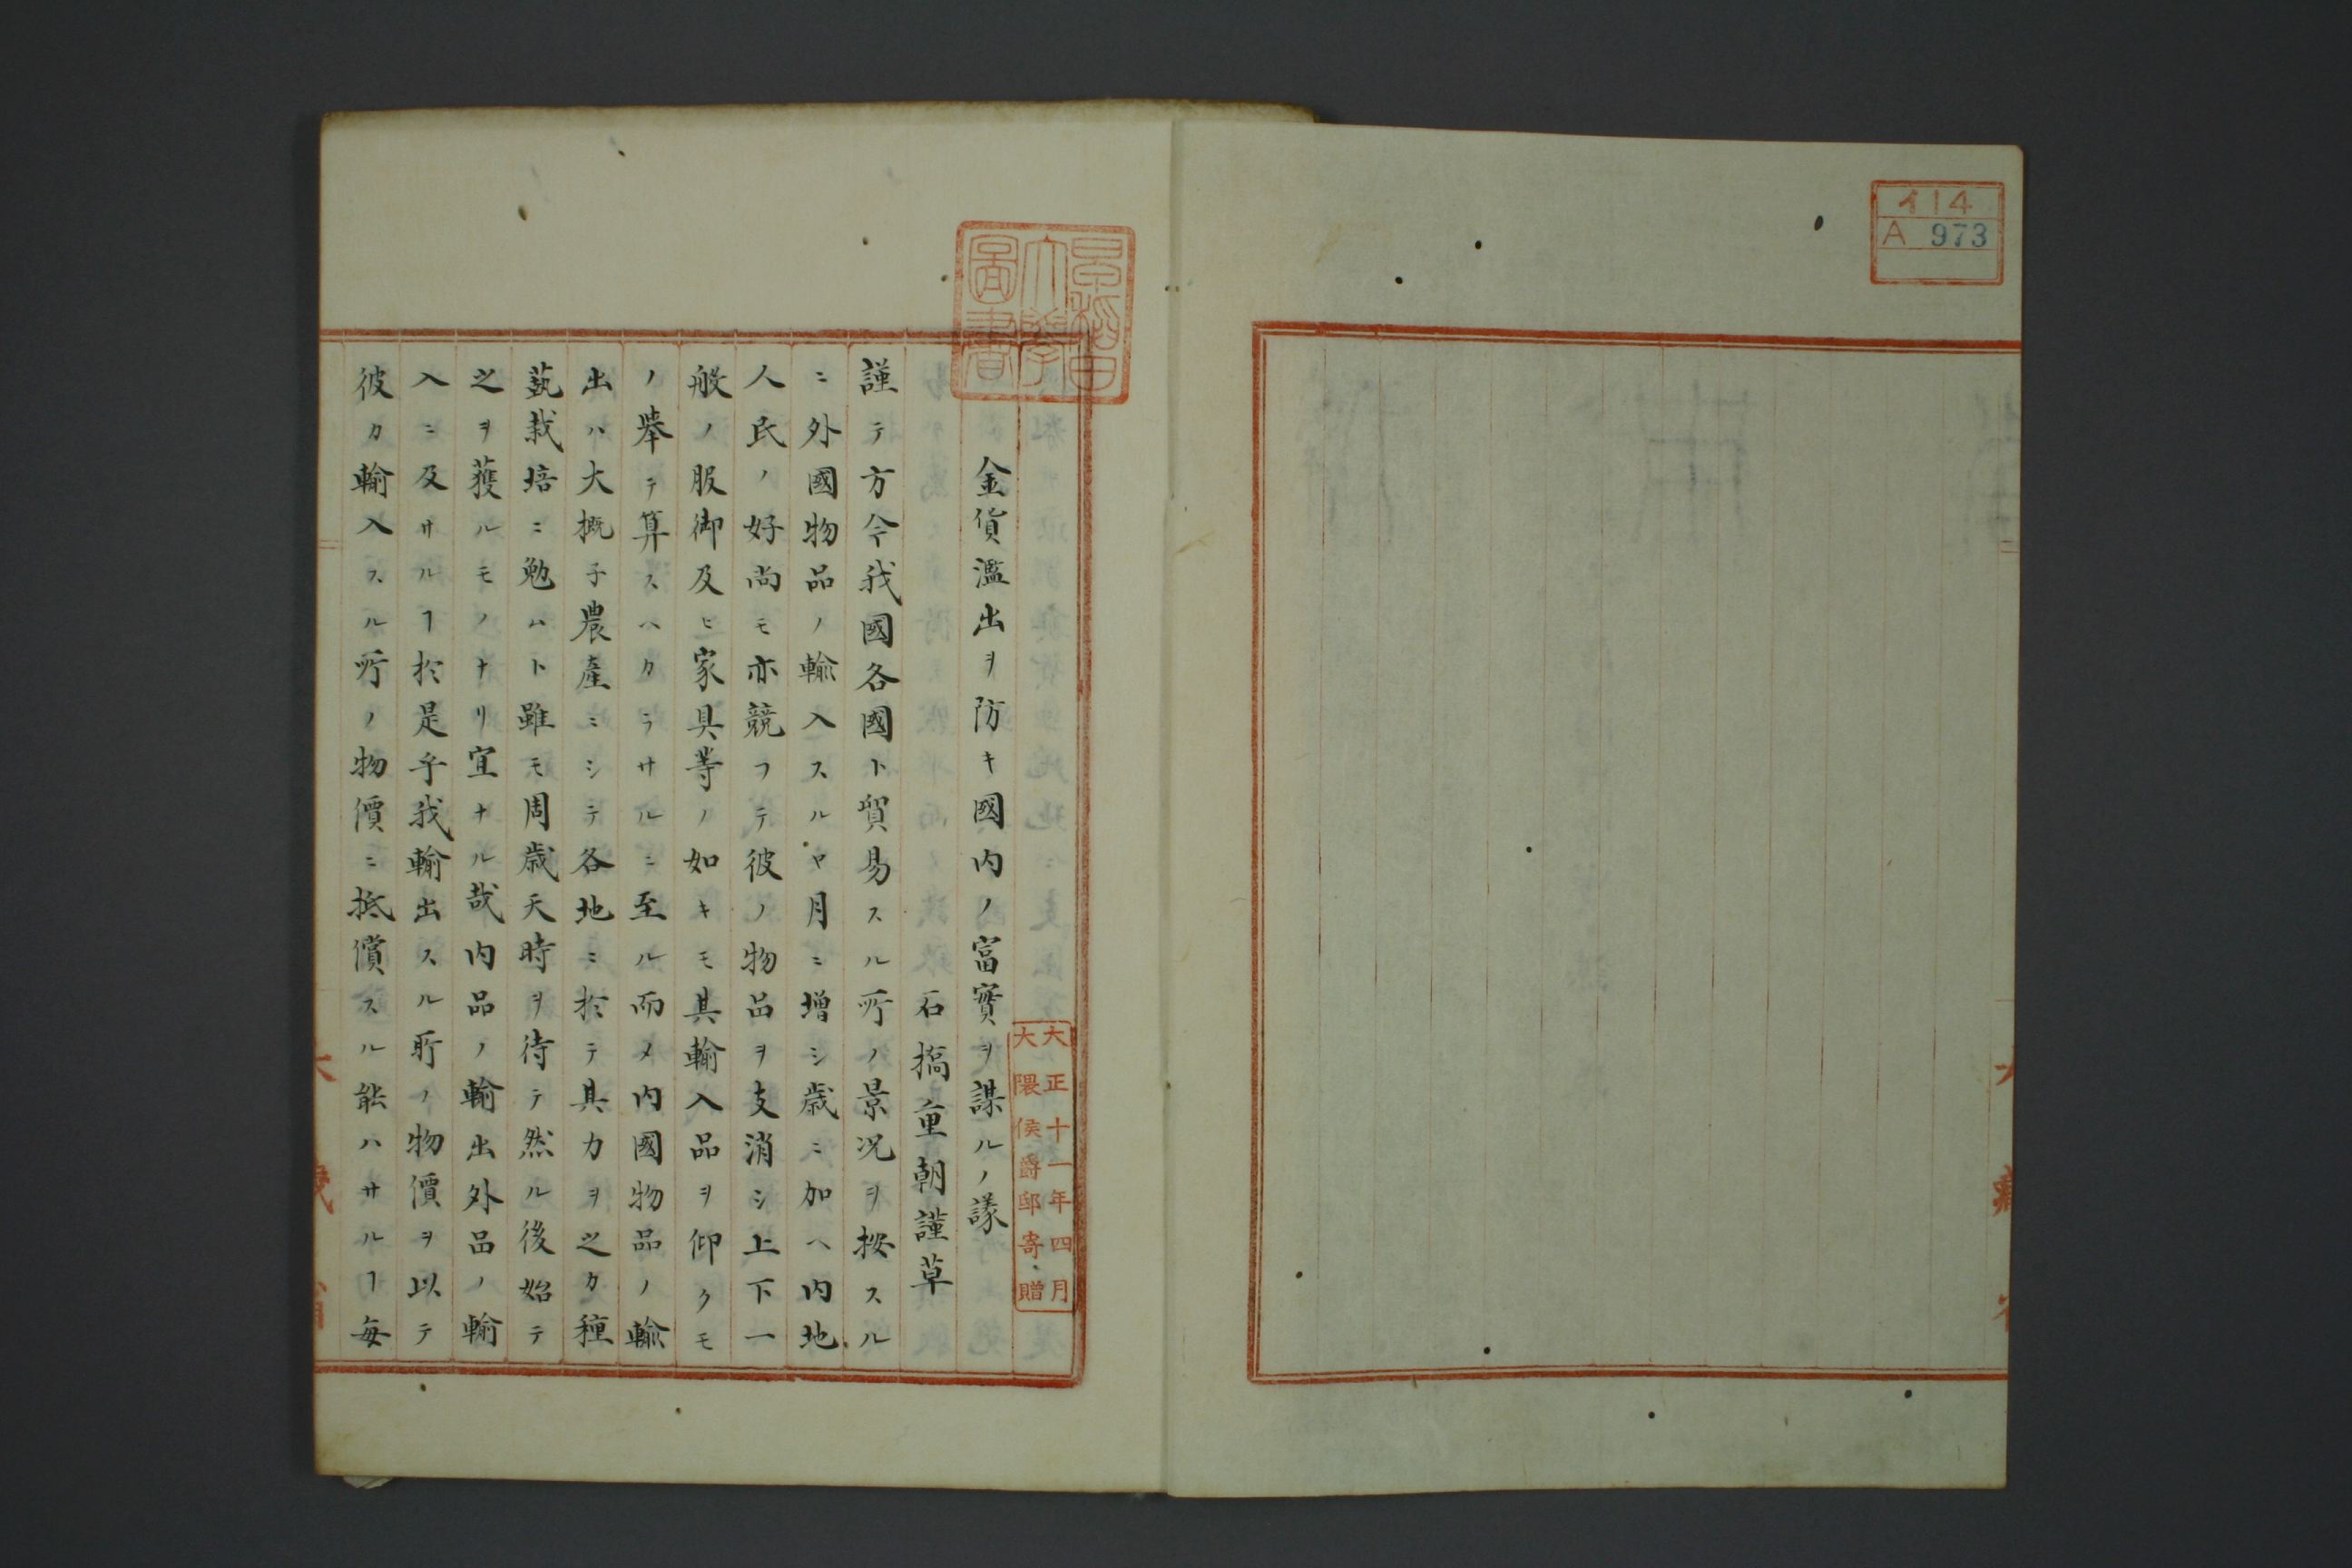 イ14
A 973
早稲田
大學
圖書
大正十一年四月
大隈侯爵邸寄贈
金貨濫出ヲ防キ國内ノ富實ヲ謀ルノ議
石橋重朝謹草
謹テ方今我國各國ト貿易スル所ノ景况ヲ按スル
ニ外國物品ノ輸入スルヤ月ニ増シ歳ニ加ヘ内地
人民ノ好尚モ亦競フテ彼ノ物品ヲ支消シ上下一
般ノ服御及ヒ家具等ノ如キモ其輸入品ヲ仰クモ
ノ舉テ算スヘカラサルニ至ル而メ内國物品ノ輸
出ハ大概子農産ニシテ各地ニ於テ其力ヲ之カ種
蓺栽培ニ勉ムト雖モ周歳天時ヲ待テ然ル後始テ
之ヲ獲ルモノナリ宜ナル哉内品ノ輸出外品ノ輸
入ニ及サルヿ於是乎我輸出スル所ノ物價ヲ以テ
彼カ輸入スル所ノ物價ニ抵償スル能ハサルヿ毎
大藏省